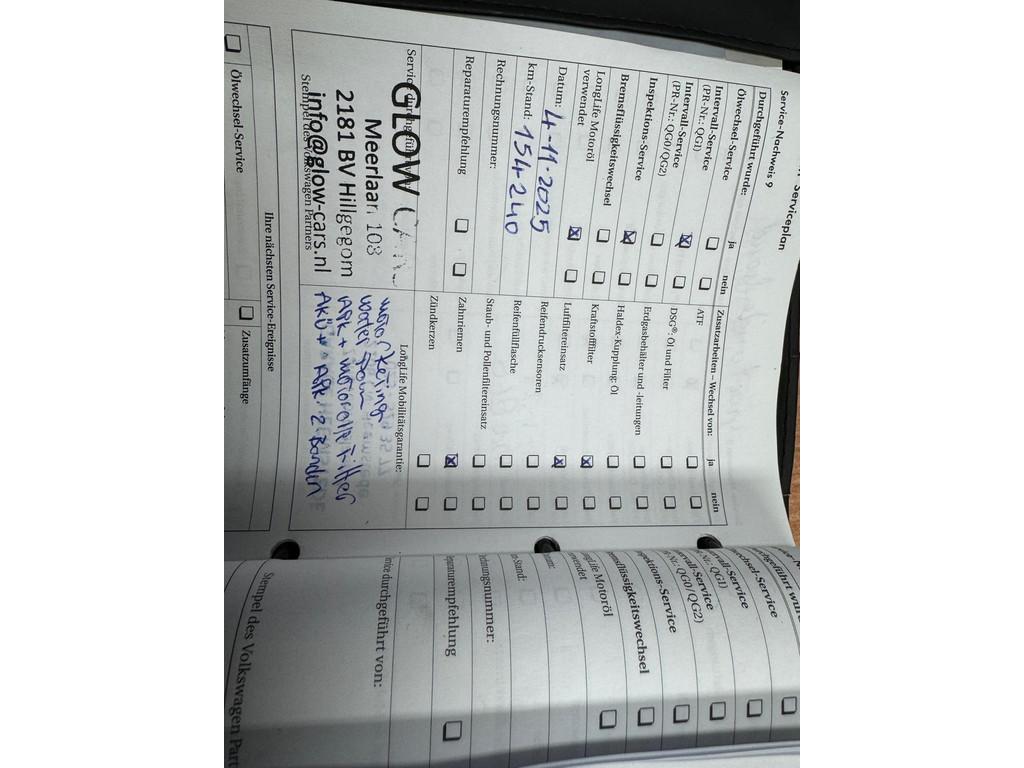 Serviceplan
Service-Nachweis 9
Durchgeführt wurde:
ja
nein
Ölwechsel-Service
Intervall-Service
(PR-Nr.: QG1)
Intervall-Service
(PR-Nr.: QG0/QG2)
Inspektions-Service
Bremsflüssigkeitswechsel
LongLife Motoröl
verwendet
Datum: 4-11-2025
km-Stand: 154240
Rechnungsnummer:
Reparaturempfehlung
Service durchgeführt
GLOW
Meerlaan 103
2181 BV Hillgegom
info@glow-cars.nl
Stempel des Volkswagen Partners
Zusatzarbeiten – Wechsel von:
ja
nein
ATF
DSG®: Öl und Filter
Erdgasbehälter und -leitungen
Haldex-Kupplung: Öl
Kraftstofffilter
Luftfiltereinsatz
Reifendrucksensoren
Reifenfüllflasche
Staub- und Pollenfiltereinsatz
Zahnriemen
Zündkerzen
LongLife Mobilitätsgarantie:
motor keting
water pomp
APK + motorolie Filter
AKÜ + APK 2 Banden
Ihre nächsten Service-Ereignisse
Ölwechsel-Service
Zusatzumfänge
durchgeführt wur
wechsel-Service
ervall-Service
Nr.: QG1)
ervall-Service
Nr.: QG0/QG2)
pektions-Service
msflüssigkeitswechsel
ngLife Motoröl
wendet
tum:
n-Stand:
chnungsnummer:
eparaturempfehlung
rvice durchgeführt von:
Stempel des Volkswagen Part